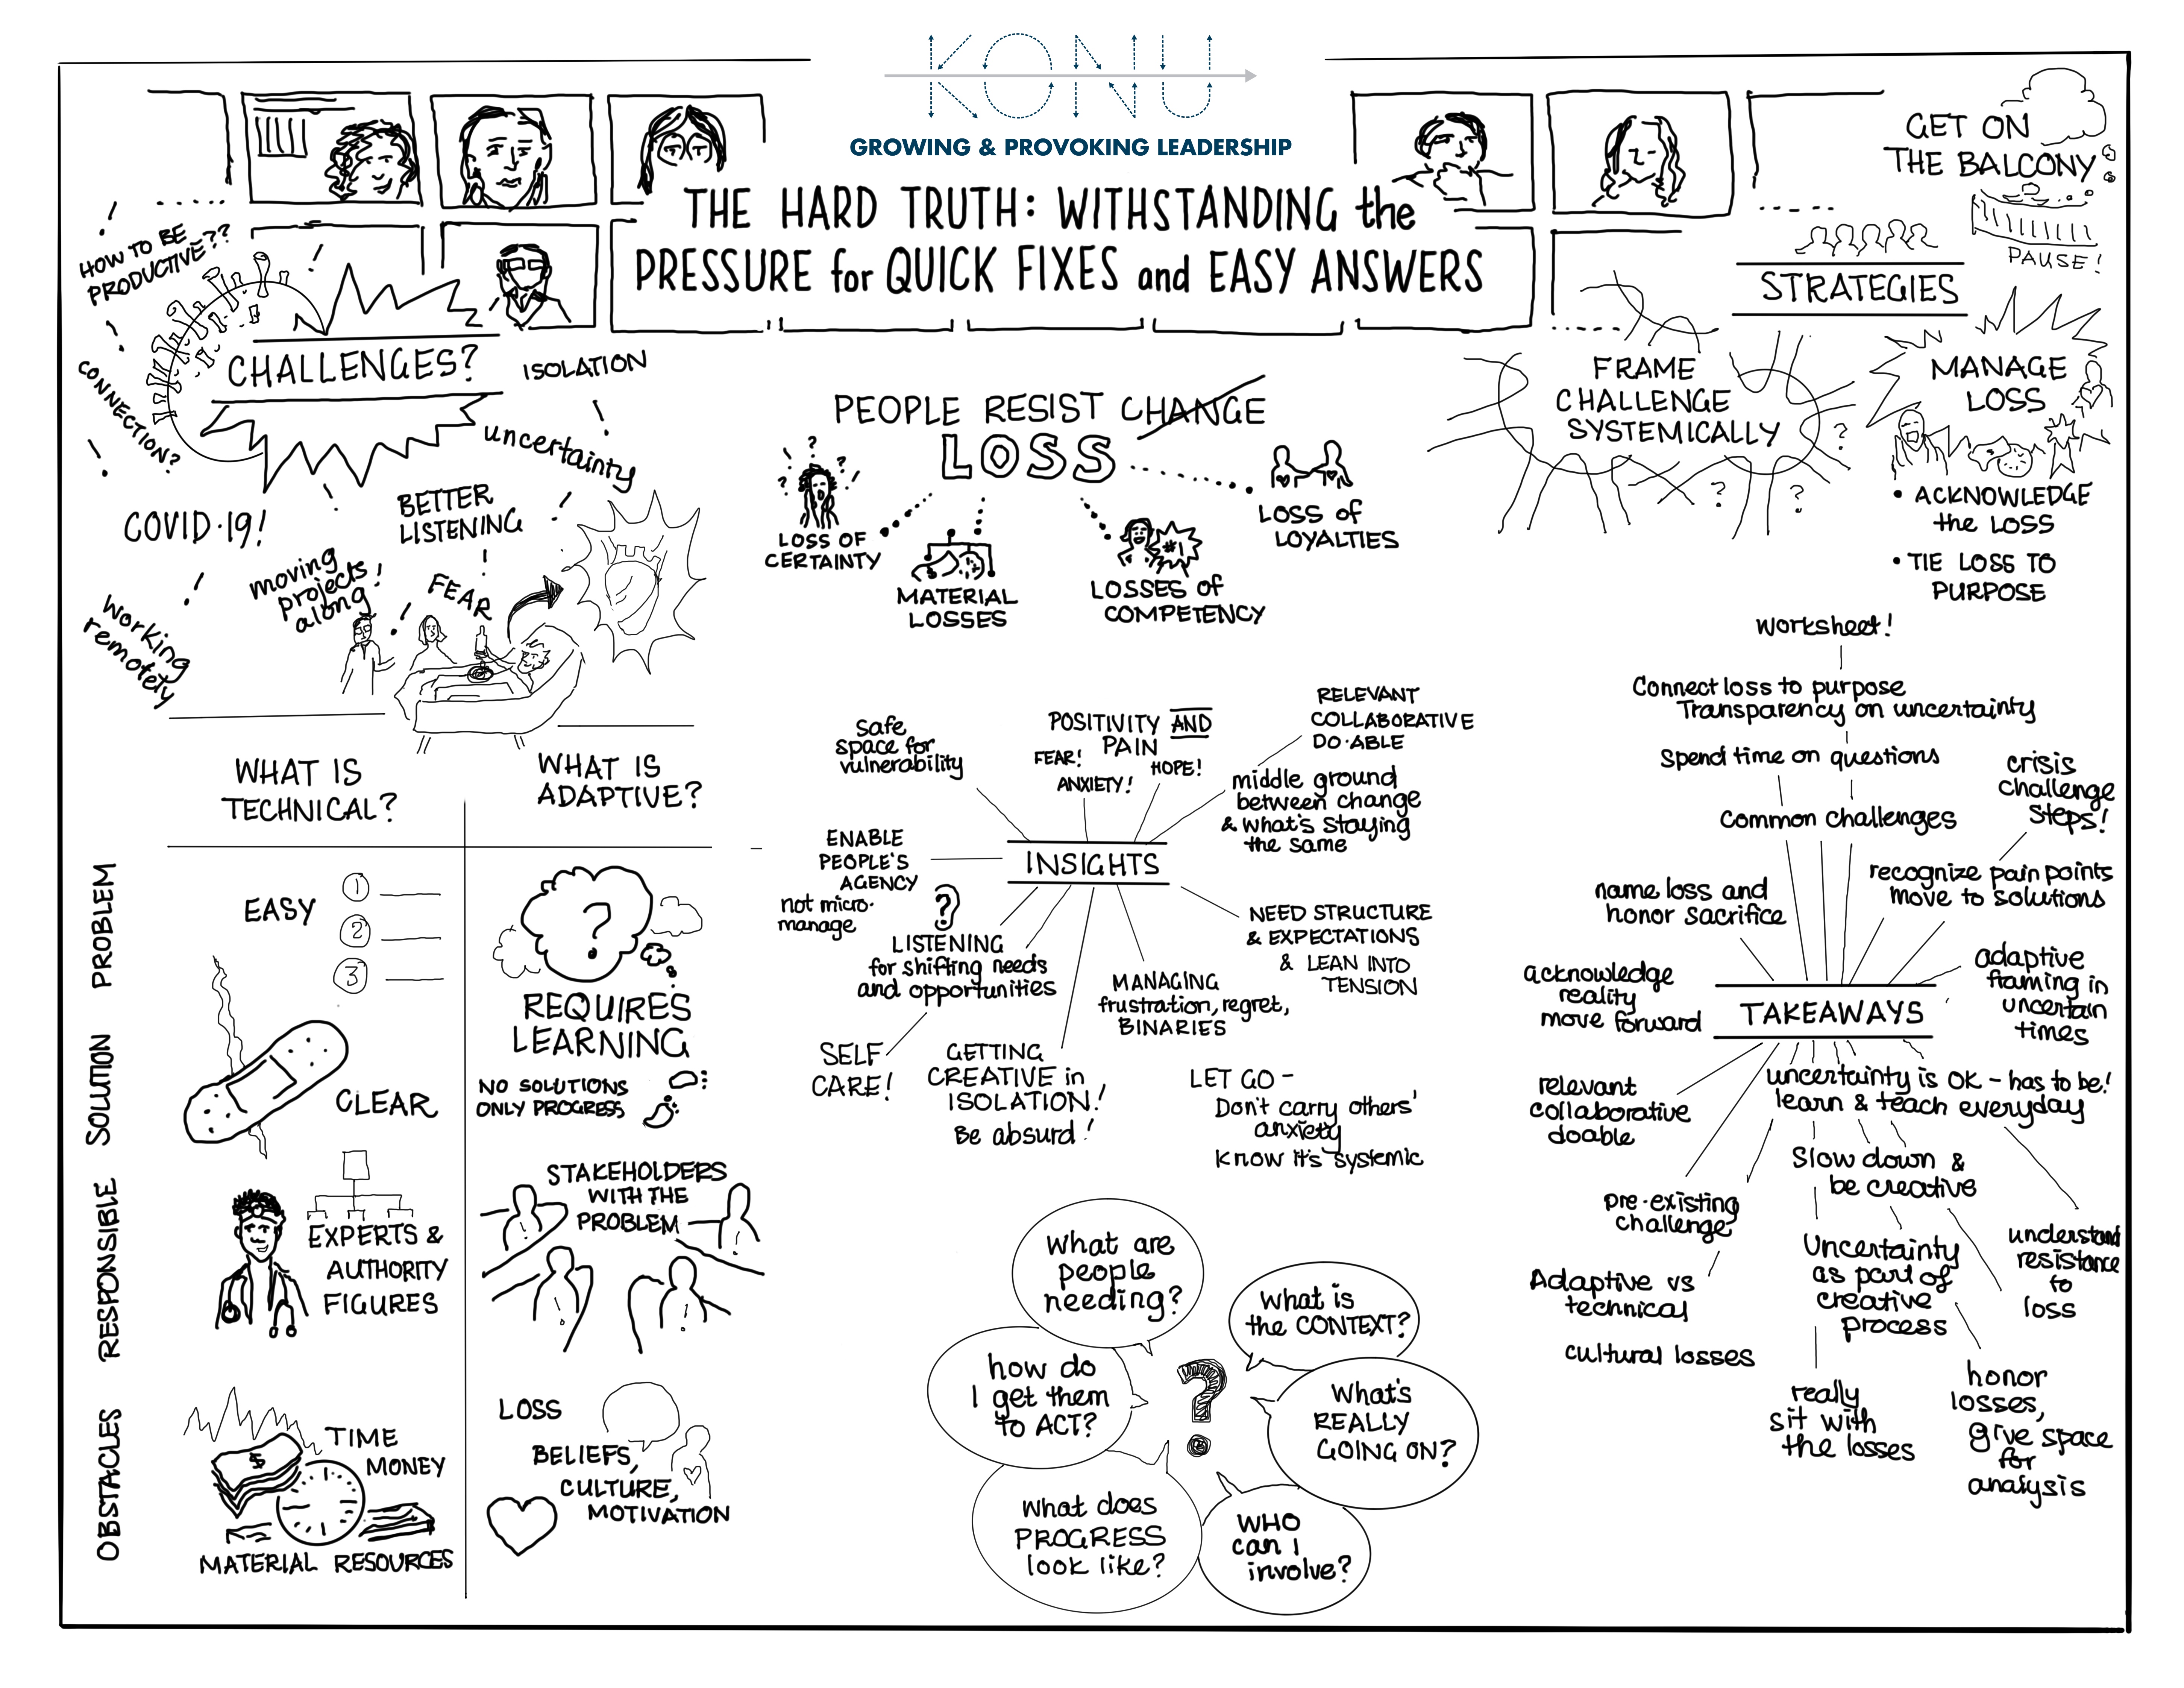 KONU
GROWING & PROVOKING LEADERSHIP
THE HARD TRUTH: WITHSTANDING the
PRESSURE for QUICK FIXES and EASY ANSWERS
HOW TO BE
PRODUCTIVE??
CONNECTION?
CHALLENGES?
ISOLATION
uncertainty
COVID-19!
BETTER
LISTENING
moving
projects
along!
FEAR
working
remotely
WHAT IS
TECHNICAL?
WHAT IS
ADAPTIVE?
PROBLEM
EASY
1
2
3
?
REQUIRES
LEARNING
SOLUTION
CLEAR
NO SOLUTIONS
ONLY PROGRESS
RESPONSIBLE
EXPERTS &
AUTHORITY
FIGURES
STAKEHOLDERS
WITH THE
PROBLEM
OBSTACLES
$
TIME
MONEY
MATERIAL RESOURCES
LOSS
BELIEFS,
CULTURE,
MOTIVATION
PEOPLE RESIST CHANGE
LOSS
LOSS OF
CERTAINTY
MATERIAL
LOSSES
#1
LOSSES of
COMPETENCY
LOSS of
LOYALTIES
INSIGHTS
Safe
space for
vulnerability
POSITIVITY AND
PAIN
FEAR!
HOPE!
ANXIETY!
RELEVANT
COLLABORATIVE
DO-ABLE
middle ground
between change
& what's staying
the same
ENABLE
PEOPLE'S
AGENCY
not micro-
manage
?
LISTENING
for shifting needs
and opportunities
SELF
CARE!
GETTING
CREATIVE in
ISOLATION!
Be absurd!
MANAGING
frustration, regret,
BINARIES
NEED STRUCTURE
& EXPECTATIONS
& LEAN INTO
TENSION
LET GO -
Don't carry others'
anxiety
Know it's systemic
What are
people
needing?
What is
the CONTEXT?
how do
I get them
to ACT?
?
What's
REALLY
GOING ON?
What does
PROGRESS
look like?
WHO
can I
involve?
GET ON
THE BALCONY
PAUSE!
STRATEGIES
FRAME
CHALLENGE
SYSTEMICALLY
?
?
?
MANAGE
LOSS
• ACKNOWLEDGE
the LOSS
• TIE LOSS TO
PURPOSE
Worksheet!
Connect loss to purpose
Transparency on uncertainty
Spend time on questions
common challenges
crisis
challenge
steps!
name loss and
honor sacrifice
recognize pain points
move to solutions
acknowledge
reality
move forward
TAKEAWAYS
adaptive
framing in
uncertain
times
relevant
collaborative
doable
uncertainty is OK - has to be!
learn & teach everyday
Slow down &
be creative
pre-existing
challenge
Adaptive vs
technical
cultural losses
Uncertainty
as part of
creative
process
understand
resistance
to
loss
really
sit with
the losses
honor
losses,
give space
for
analysis